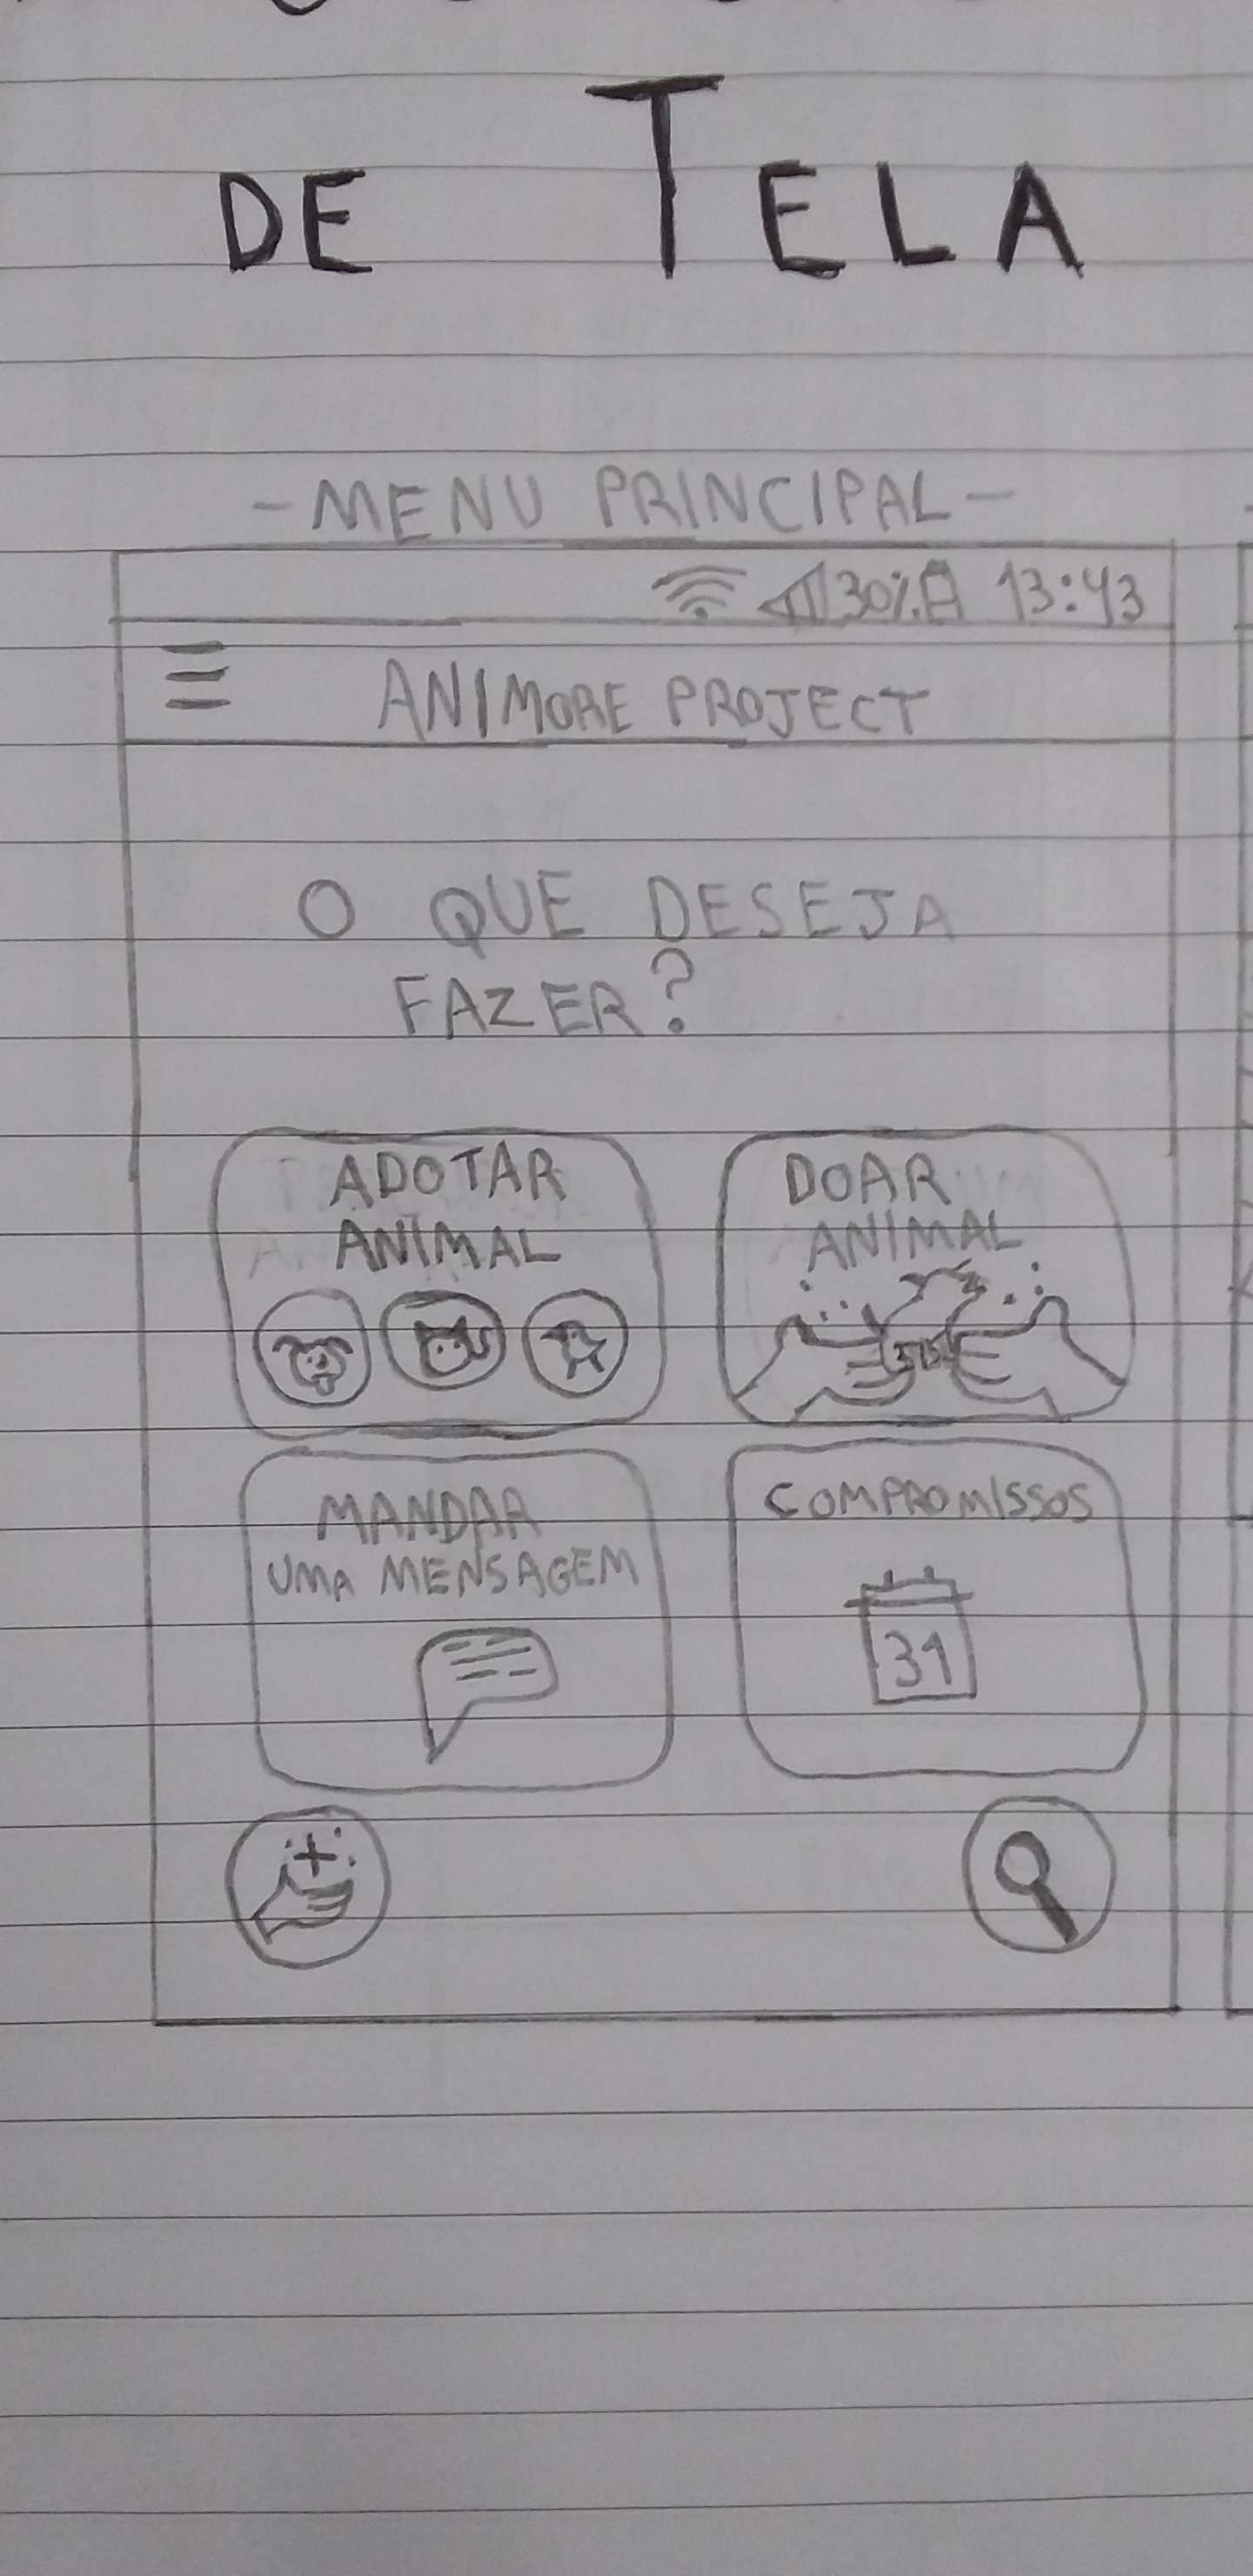 DE TELA
- MENU PRINCIPAL -
30% 13:43
ANIMORE PROJECT
O QUE DESEJA
FAZER?
ADOTAR
ANIMAL
DOAR
ANIMAL
MANDAR
UMA MENSAGEM
COMPROMISSOS
31